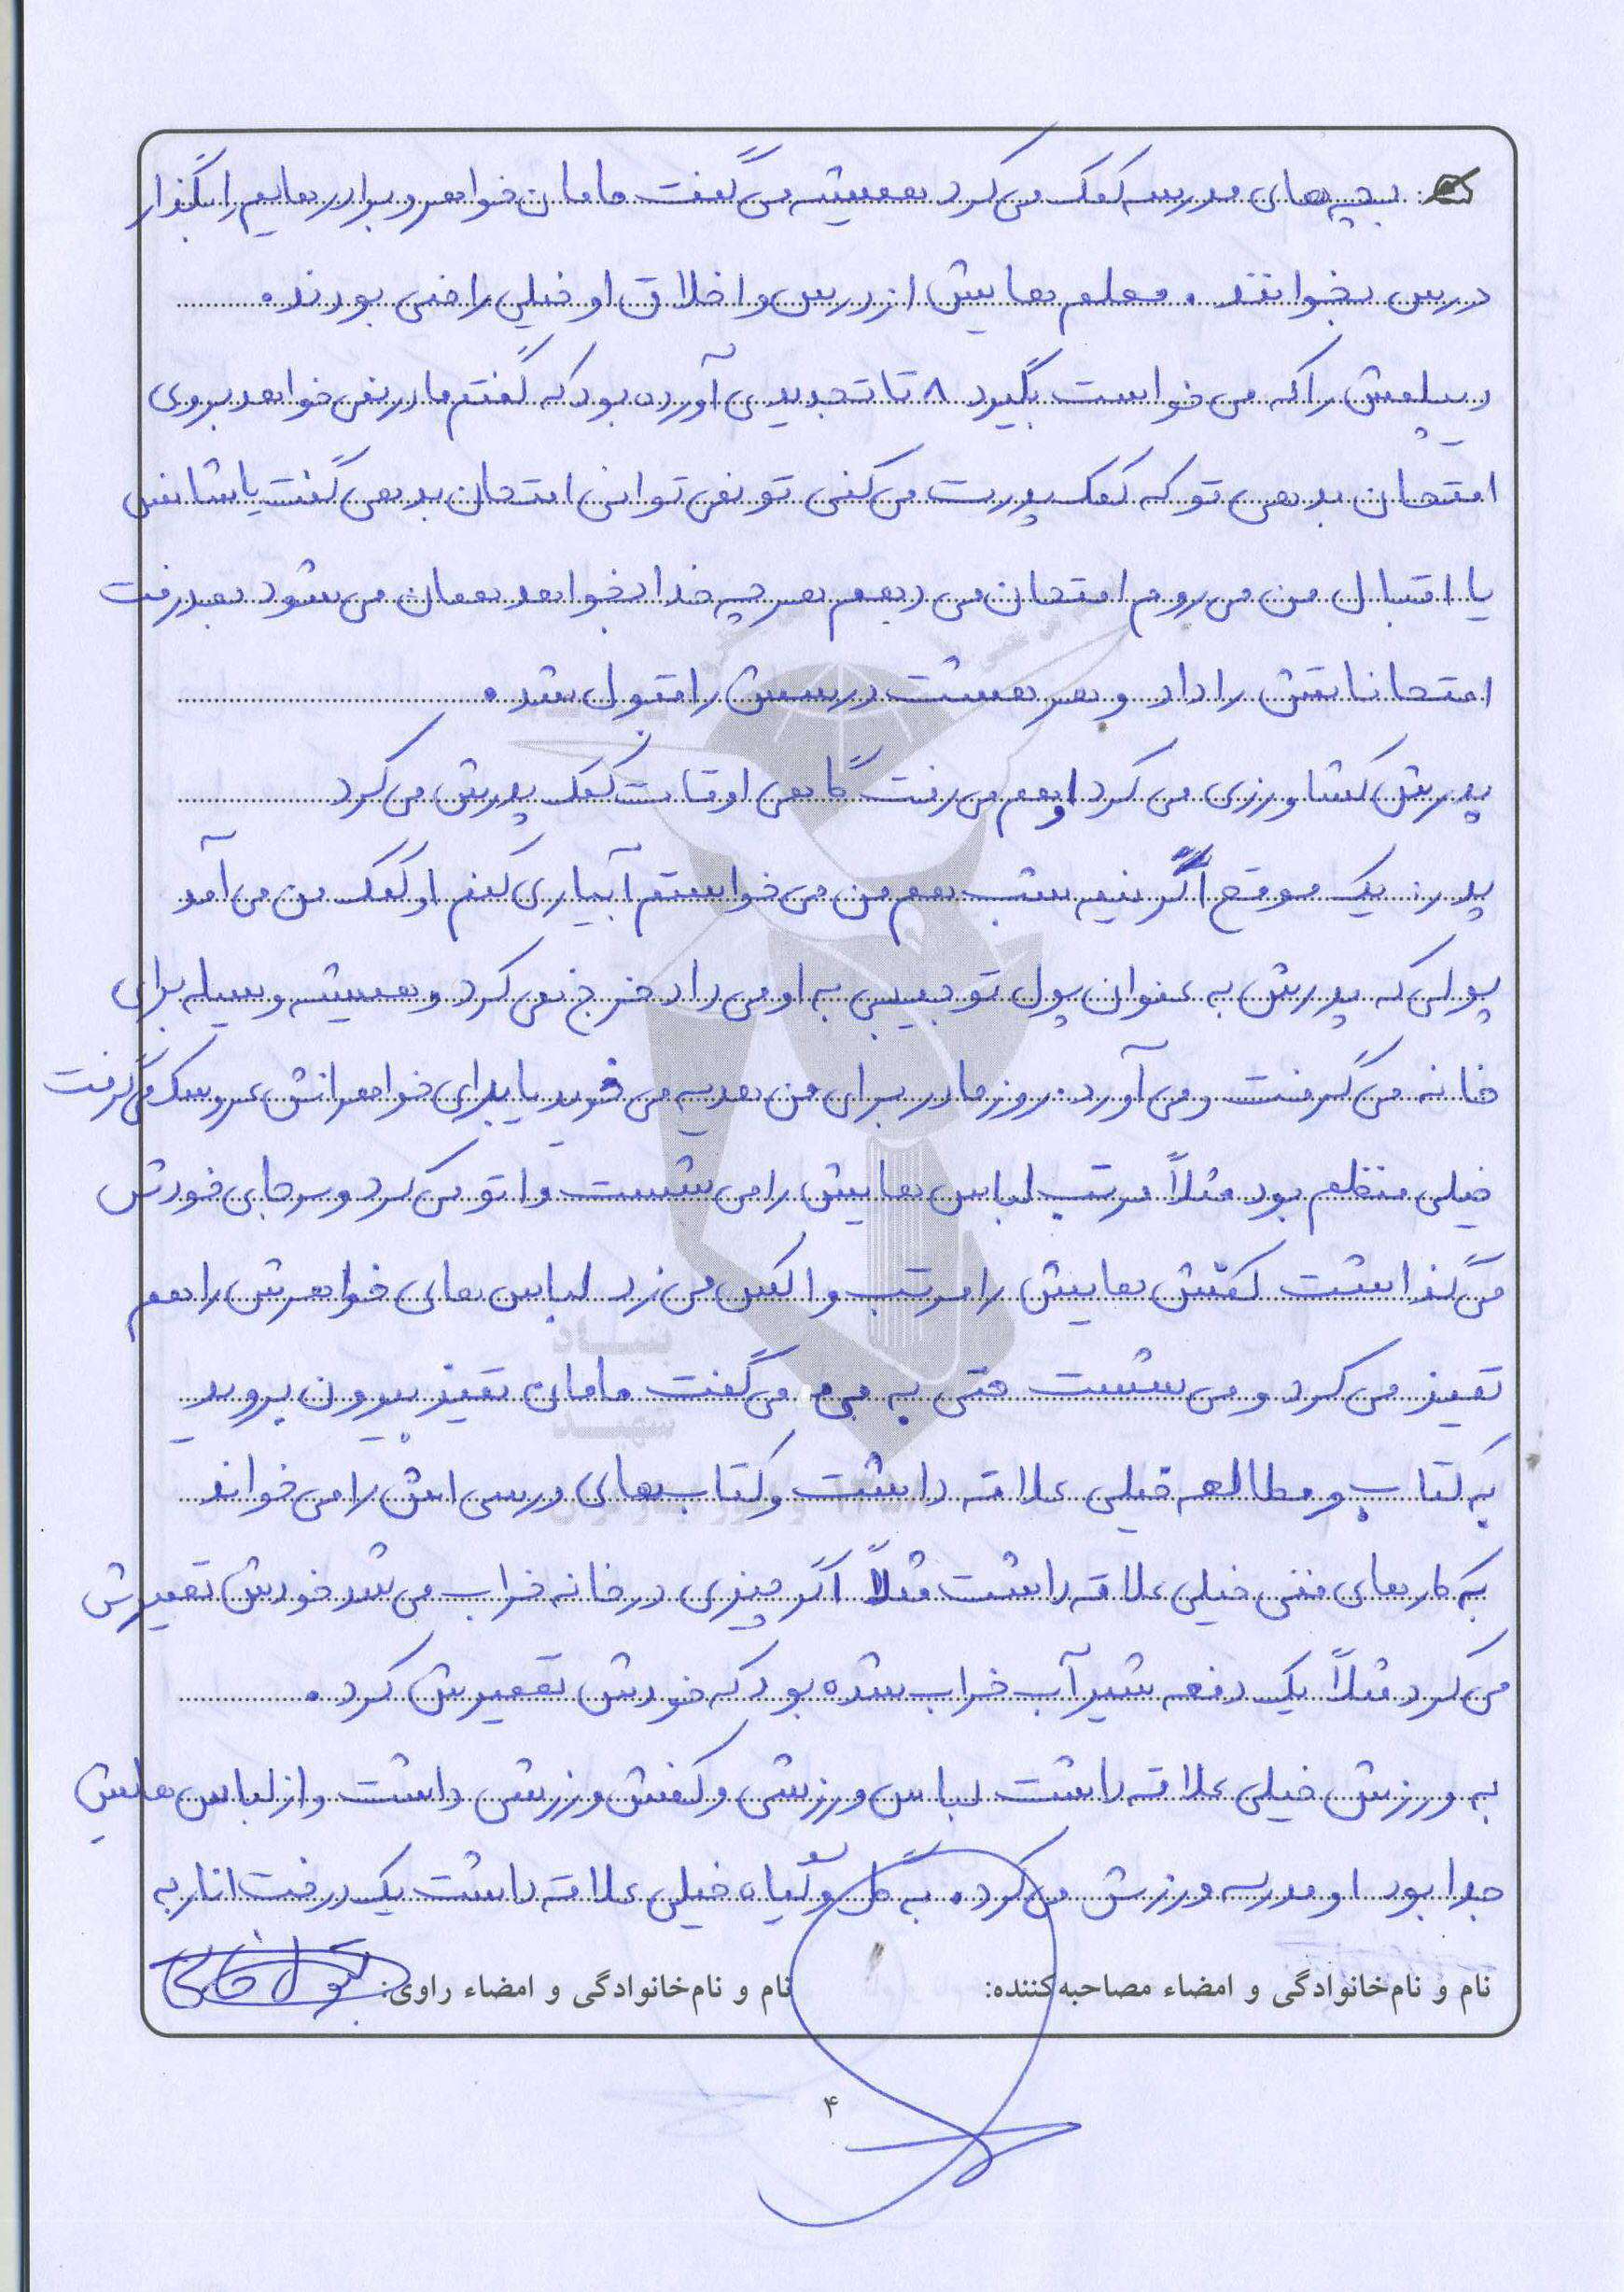 بچه های مدرسه کمک می کرد همیشه می گفت مامان خواهر و برادرهایم را بگذار
درس بخوانند . معلم هایش از درس و اخلاق او خیلی راضی بودند.
دیپلمش را که می خواست بگیرد ۸ تا تجدیدی آورده بود که گفتم مادر نمی خواهد بروی
امتحان بدهی تو که کمک پدرت می کنی تو نمی توانی امتحان بدهی گفت یا شانس
یا اقبال من می روم امتحان می دهم هر چه خدا بخواهد همان می شود بعد رفت
امتحاناتش را داد و هر هشت درسش را قبول شد.
پدرش کشاورزی می کرد او هم می رفت گاهی اوقات کمک پدرش می کرد
پدر: یک موقع اگر نیمه شب هم من می خواستم آبیاری کنم او کمک من می آمد
پولی که پدرش به عنوان پول تو جیبی به او می داد خرج نمی کرد و همیشه وسیله برای
خانه می گرفت و می آورد. روز مادر برای من هدیه می خرید یا برای خواهرانش عروسک می گرفت
خیلی منظم بود مثلاً مرتب لباس هایش را می شست و اتو می کرد و سر جای خودش
می گذاشت کفش هایش را مرتب واکس می زد لباس های خواهرش را هم
تمیز می کرد و می شست حتی به می گفت مامان تمیز بیرون بروید
به کتاب و مطالعه خیلی علاقه داشت و کتاب های درسی اش را می خواند
به کارهای فنی خیلی علاقه داشت مثلاً اگر چیزی در خانه خراب می شد خودش تعمیرش
می کرد مثلاً یک دفعه شیر آب خراب شده بود که خودش تعمیرش کرد.
به ورزش خیلی علاقه داشت لباس ورزشی و کفش ورزشی داشت و از لباس هایش
جدا بود او مدرسه ورزش می کرد. به گل و گیاه خیلی علاقه داشت یک درخت انار به
نام و نام‌خانوادگی و امضاء مصاحبه‌کننده: نام و نام‌خانوادگی و امضاء راوی:
۴
بنیاد
شهید